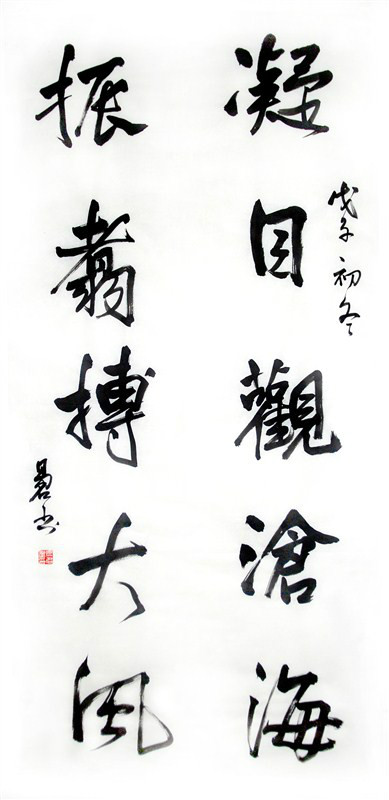 凝目觀滄海
戊子初冬
振翥搏大風
書